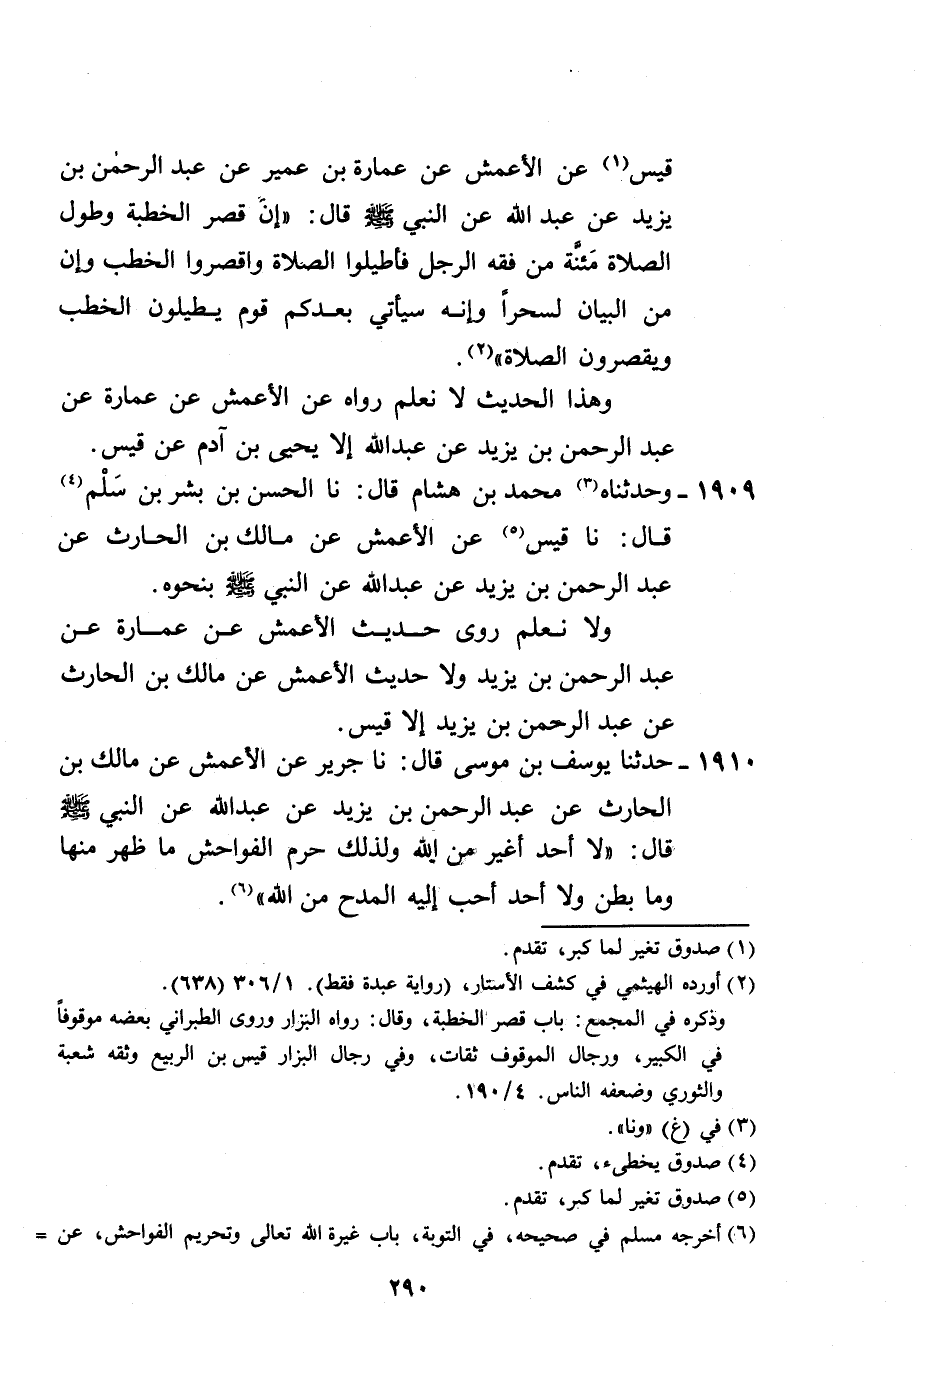 قيس(١) عن الأعمش عن عمارة بن عمير عن عبد الرحمٰن بن
يزيد عن عبد الله عن النبي ﷺ قال: «إنّ قصر الخطبة وطول
الصلاة مَئنَّة من فقه الرجل فأطيلوا الصلاة واقصروا الخطب وإن
من البيان لسحراً وإنه سيأتي بعدكم قوم يطيلون الخطب
ويقصرون الصلاة»(٢).
وهذا الحديث لا نعلم رواه عن الأعمش عن عمارة عن
عبد الرحمن بن يزيد عن عبدالله إلا يحيى بن آدم عن قيس.
١٩٠٩ ـ وحدثناه(٣) محمد بن هشام قال: نا الحسن بن بشر بن سَلْم(٤)
قال: نا قيس(٥) عن الأعمش عن مالك بن الحارث عن
عبد الرحمن بن يزيد عن عبدالله عن النبي ﷺ بنحوه.
ولا نعلم روى حديث الأعمش عن عمارة عن
عبد الرحمن بن يزيد ولا حديث الأعمش عن مالك بن الحارث
عن عبد الرحمن بن يزيد إلا قيس.
١٩١٠ ـ حدثنا يوسف بن موسى قال: نا جرير عن الأعمش عن مالك بن
الحارث عن عبد الرحمن بن يزيد عن عبدالله عن النبي ﷺ
قال: «لا أحد أغير من الله ولذلك حرم الفواحش ما ظهر منها
وما بطن ولا أحد أحب إليه المدح من الله»(٦).
(١) صدوق تغير لما كبر، تقدم.
(٢) أورده الهيثمي في كشف الأستار، (رواية عبدة فقط). ٣٠٦/١ (٦٣٨).
وذكره في المجمع: باب قصر الخطبة، وقال: رواه البزار وروى الطبراني بعضه موقوفاً
في الكبير، ورجال الموقوف ثقات، وفي رجال البزار قيس بن الربيع وثقه شعبة
والثوري وضعفه الناس. ١٩٠/٤.
(٣) في (غ) «ونا».
(٤) صدوق يخطىء، تقدم.
(٥) صدوق تغير لما كبر، تقدم.
(٦) أخرجه مسلم في صحيحه، في التوبة، باب غيرة الله تعالى وتحريم الفواحش، عن =
٢٩٠